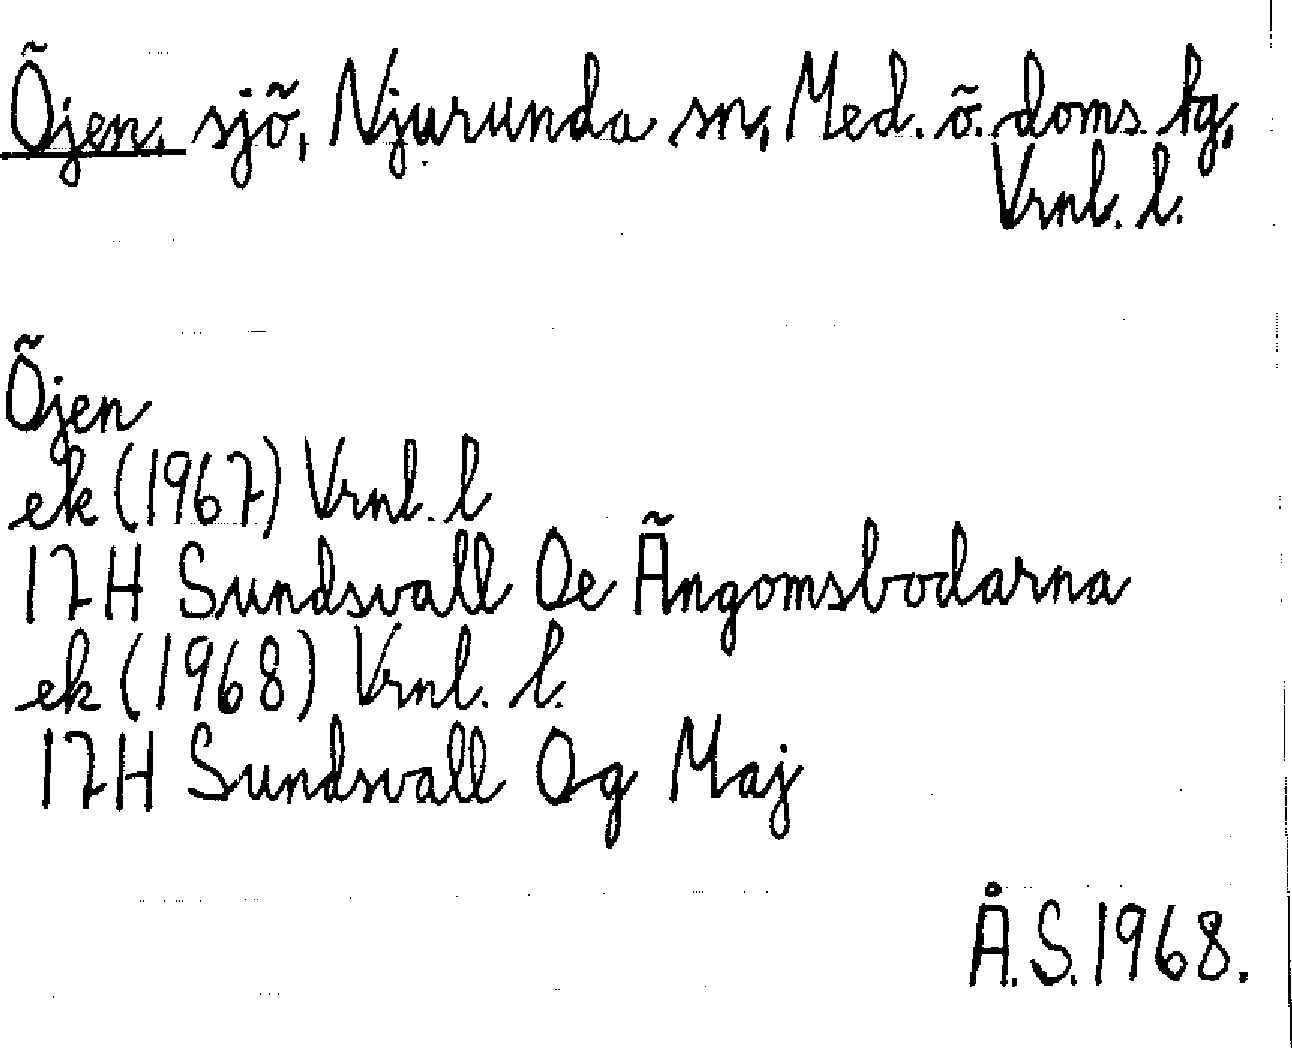 Öjen, sjö, Njurunda sn, Med. ö. doms. tg,
Vrnl. l.
Öjen
ek (1967) Vrnl. l
17H Sundsvall Oe Ängomsbodarna
ek (1968) Vrnl. l.
17H Sundsvall Og Maj
Å.S. 1968.